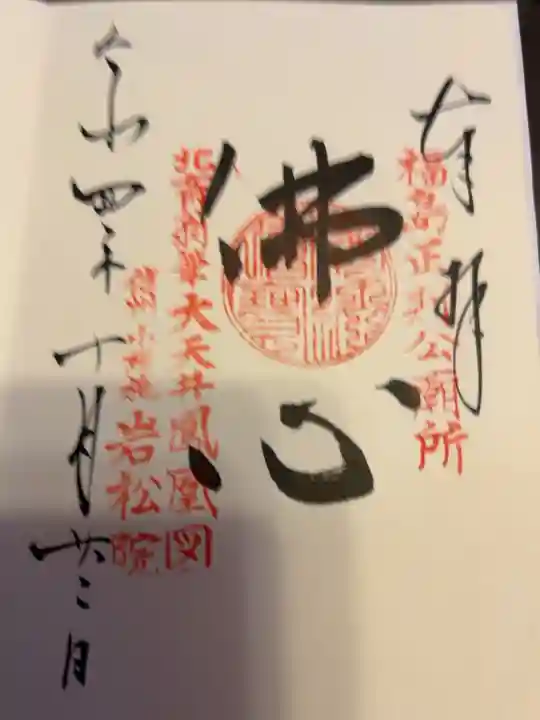 奉拝
福島正則公廟所
佛心
北斎肉筆大天井鳳凰図
信州小布施 岩松院
令和四年十月廿二日